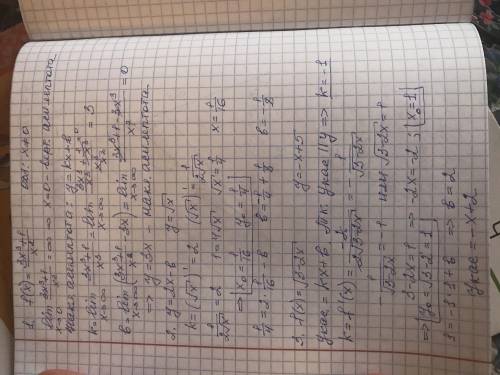 1. f(x) = (3x³+1)/x²   ООФ: x≠0
lim x→0 (3x³+1)/x² = ∞ => x=0 - верт. асимптота
Накл. асимптота: y = kx+b
k = lim x→∞ (3x³+1)/x³ = lim x→∞ (3x³/x³ + 1/x³)/(x³/x³) = 3
b = lim x→∞ ((3x³+1)/x² - 3x) = lim x→∞ (3x³+1-3x³)/x² = 0
=> y = 3x - накл. асимптота
2. y = 2x-b   y = √x
k = (√x)' = 2   (√x)' = 1/(2√x)
1/(2√x) = 2   1 = 4√x   √x = 1/4   x = 1/16
=> x₀ = 1/16   y₀ = 1/4
1/4 = 2·1/16 - b   b = -1/4 + 1/8   b = -1/8
3. f(x) = √(3-2x)   y = -x+5
yкас = kx+b   т.к. yкас || y => k = -1
k = f'(x) = -2/(2√(3-2x)) = -1/√(3-2x)
-1/√(3-2x) = -1   или √(3-2x) = 1
3-2x = 1 => -2x = -2; x₀ = 1
=> y₀ = √(3-2) = 1
1 = -1·1+b => b = 2
yкас = -x+2